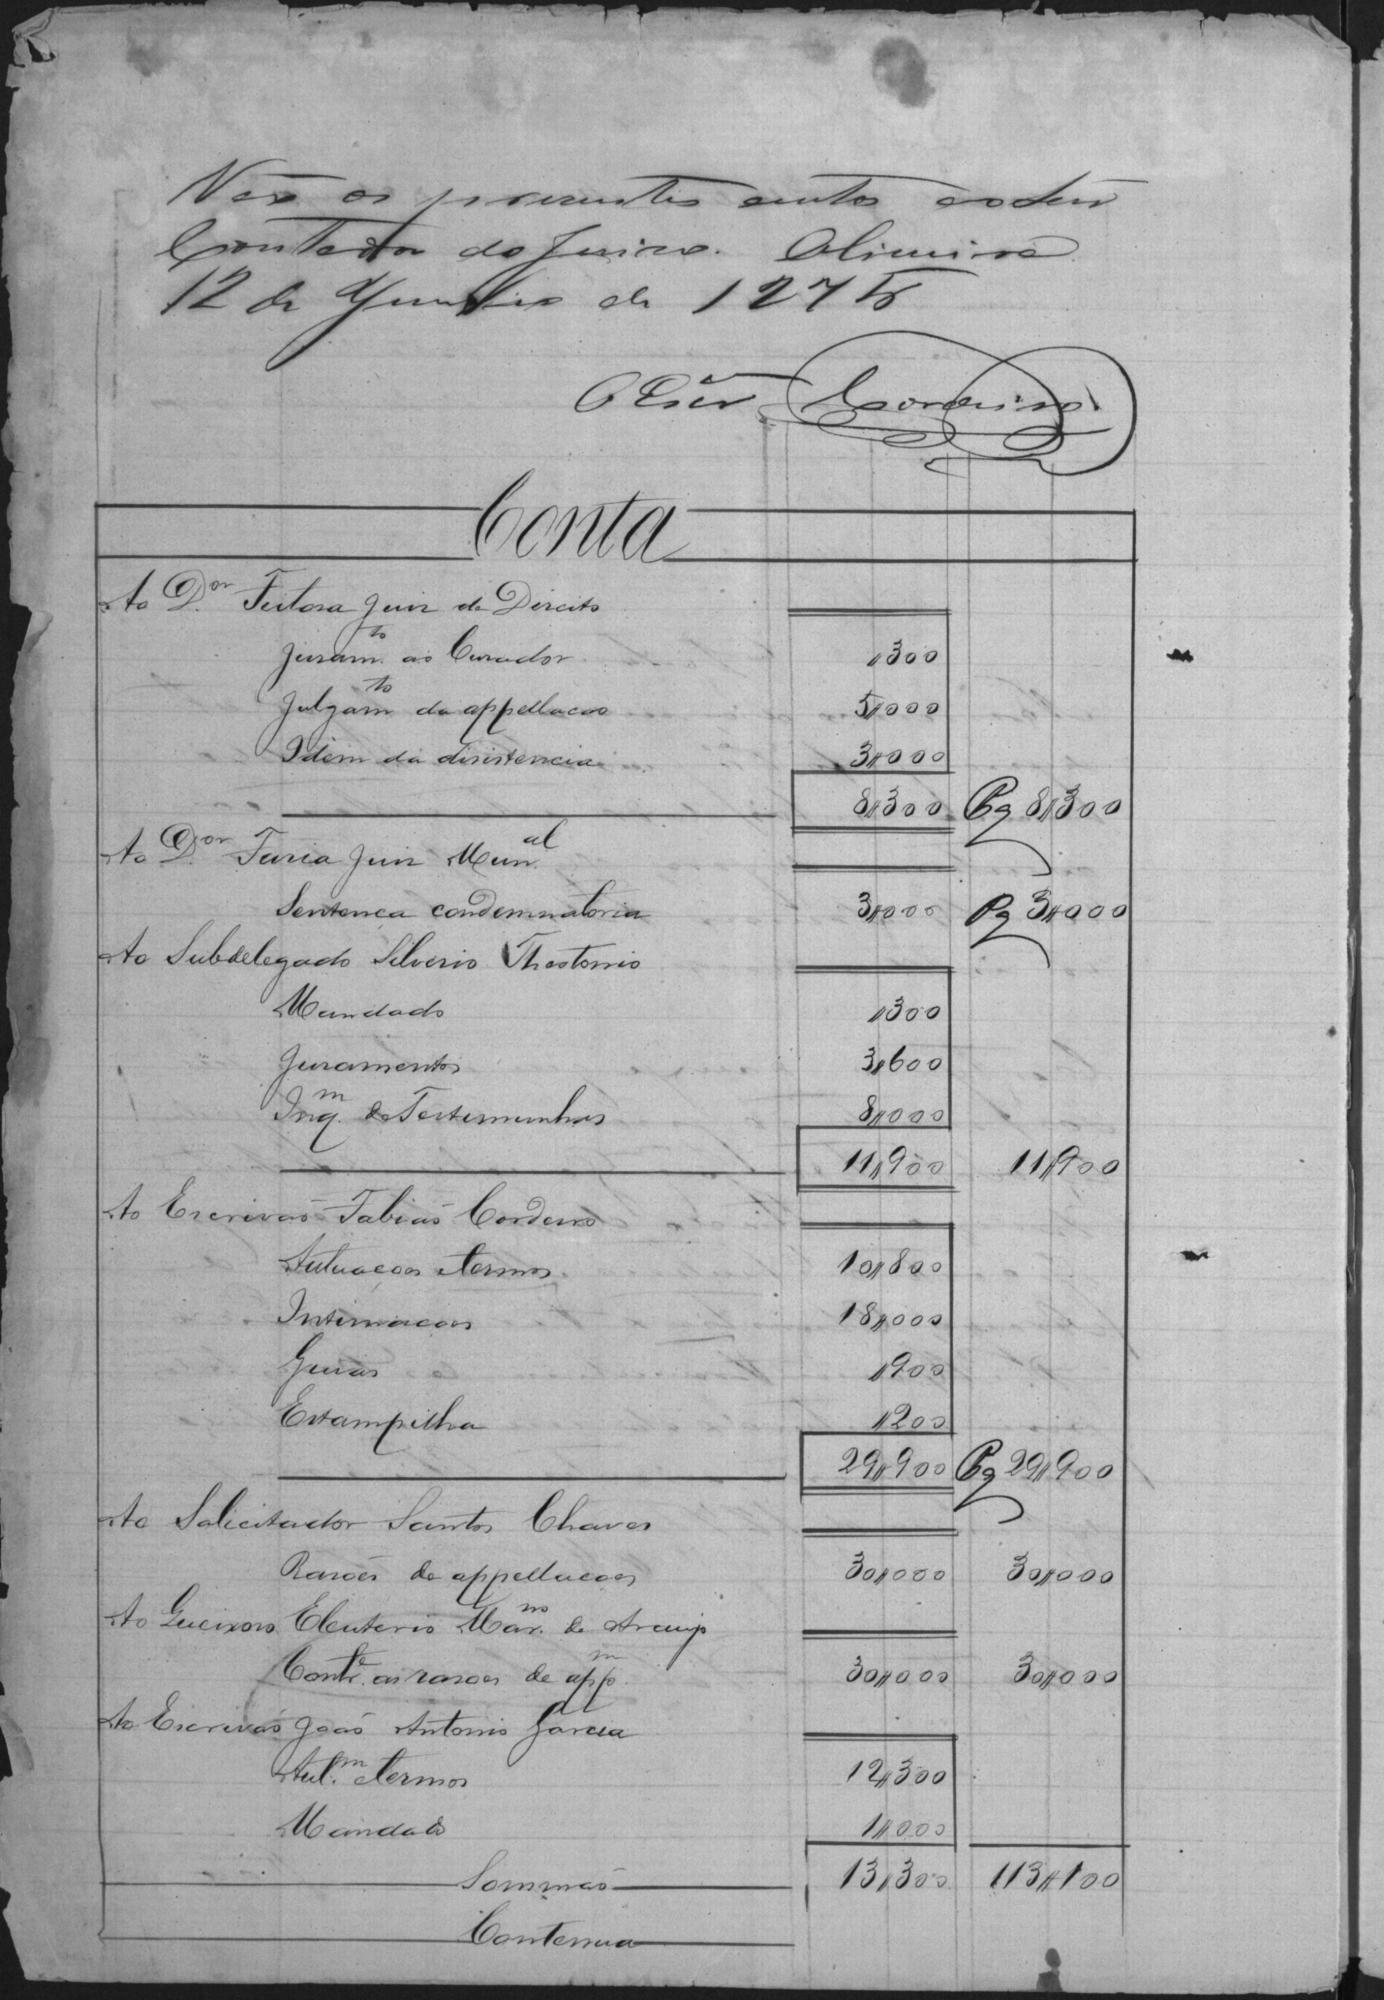 Vão os presentes autos ao Sen
Contador do Juizo. Oliveira
12 de Junho de 187
O Escr.ᵃᵐ Cordeiro
Conta
Ao D.ᵒʳ Feitosa Juiz de Direito
Juram.ᵗᵒ ao Curador 〃300
Julgam.ᵗᵒ da appellacao 5〃000
Idem da disistencia 3〃000
8〃300 Pg 8〃300
Ao D.ᵒʳ Faria Juiz Mun.ᵃˡ
Sentença condemnatoria 3〃000 Pg 3〃000
Ao Subdelegado Silverio Theotonio
Mandado 〃300
Juramentos 3〃600
Inq.ᵐ de Testemunhas 8〃000
11〃900 11〃900
Ao Escrivaõ Fabiaõ Cordeiro
Autuacoes etermos 10〃800
Intimacoes 18〃000
Guias 〃900
Estampilha 〃200
29〃900 Pg 29〃900
Ao Solicitador Santos Chaves
Rasoẽs de appellacoes 30〃000 30〃000
Ao Queixoso Eleuterio Mar.ⁿᵒ de Araujo
Cont.ᵉ as rasoes de app.ᵐ 30〃000 30〃000
Ao Escrivaõ Joaõ Antonio Garcia
Aut.ᵐ etermos 12〃300
Mandado 1〃000
Sommaõ 13〃300 113〃100
Contenua